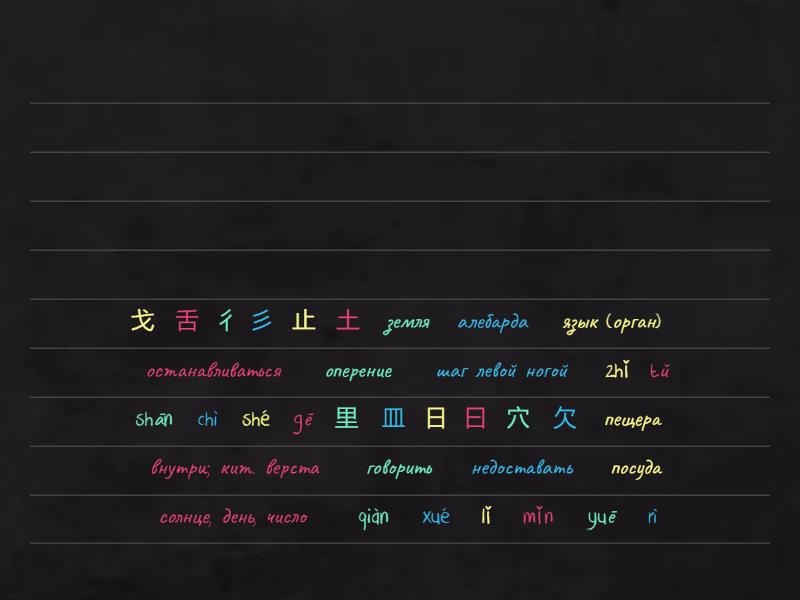 戈 舌 彳 彡 止 土 земля алебарда язык (орган)
останавливаться оперение шаг левой ногой zhǐ tǔ
shān chì shé gē 里 皿 日 曰 穴 欠 пещера
внутри; кит. верста говорить недоставать посуда
солнце, день, число qiàn xué lǐ mǐn yuē rì